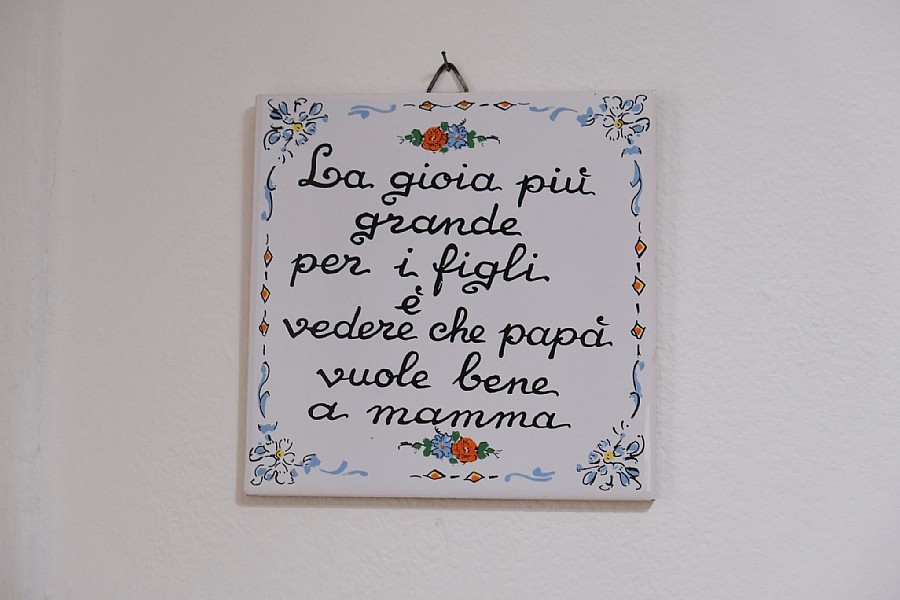 La gioia più
grande
per i figli
è
vedere che papà
vuole bene
a mamma